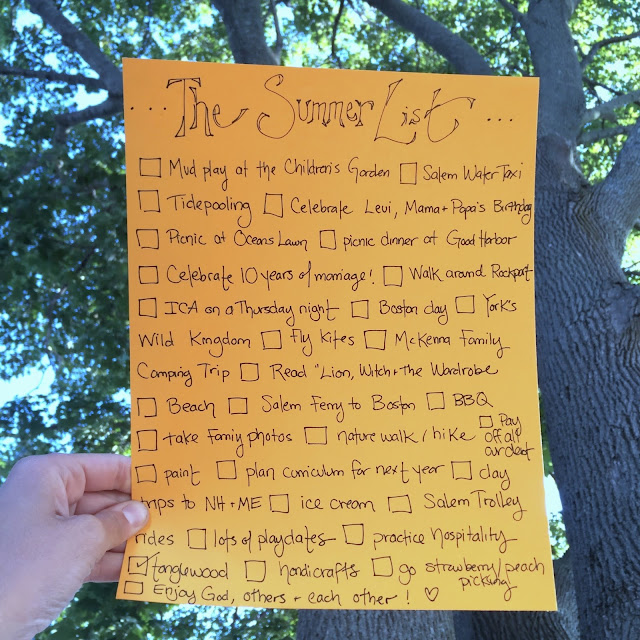 ... The Summer List ...
☐ Mud play at the Children's Garden ☐ Salem Water Taxi
☐ Tidepooling ☐ Celebrate Levi, Mama + Papa's Birthday
☐ Picnic at Oceans Lawn ☐ picnic dinner at Good Harbor
☐ Celebrate 10 years of marriage! ☐ Walk around Rockport
☐ ICA on a Thursday night ☐ Boston day ☐ York's
Wild Kingdom ☐ fly kites ☐ McKenna Family
Camping Trip ☐ Read "Lion, Witch + The Wardrobe
☐ Beach ☐ Salem Ferry to Boston ☐ BBQ
☐ take family photos ☐ nature walk / hike ☐ Pay
off all
our debt
☐ paint ☐ plan curriculum for next year ☐ day
trips to NH + ME ☐ ice cream ☐ Salem Trolley
rides ☐ lots of playdates ☐ practice hospitality
☑ tanglewood ☐ handicrafts ☐ go strawberry/peach
picking
☐ Enjoy God, others + each other! ♡